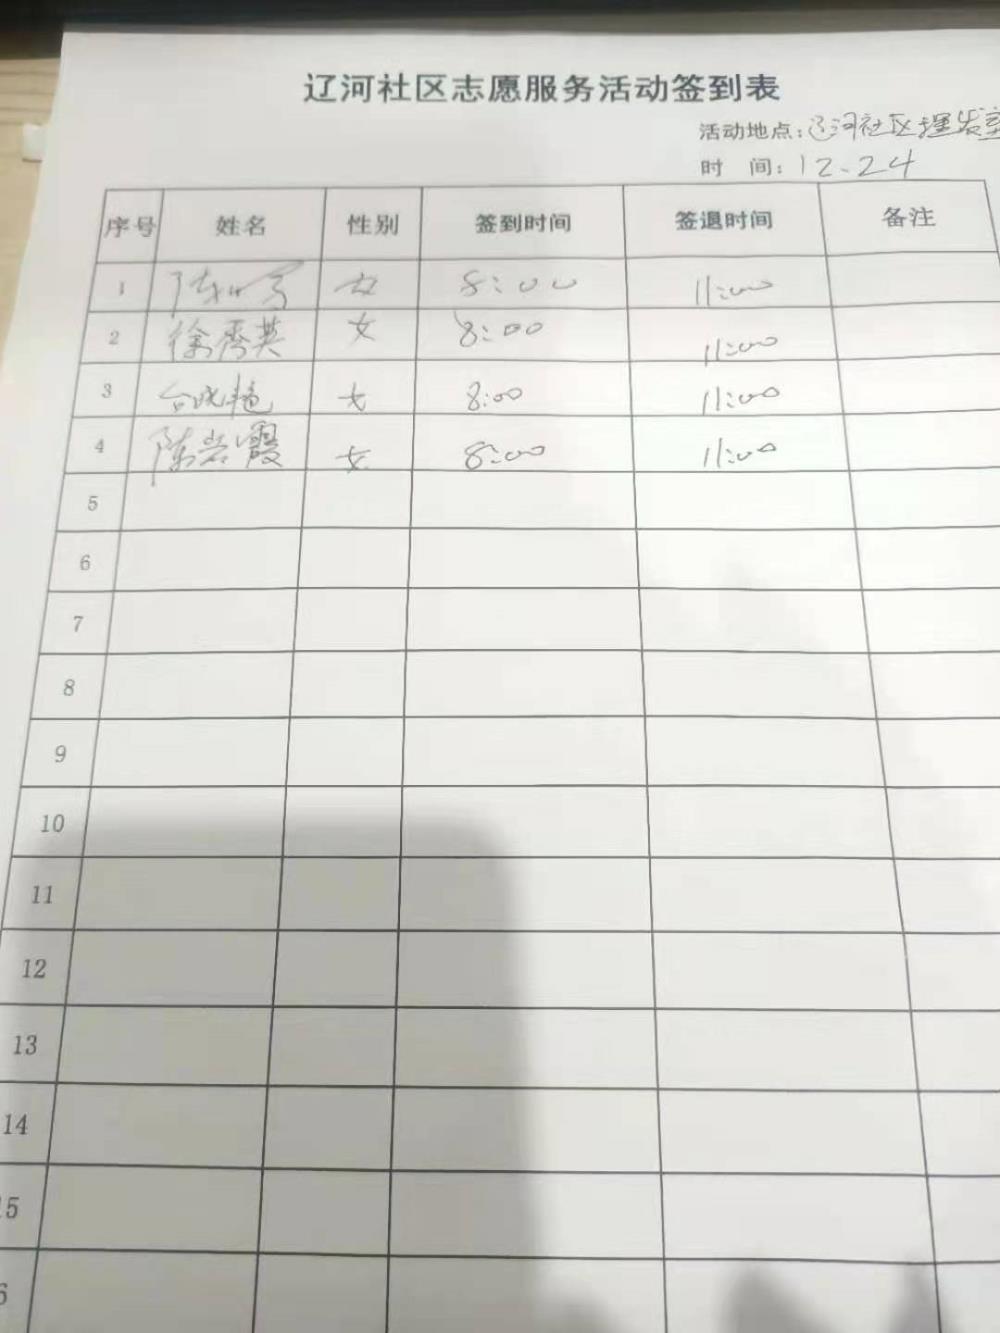 辽河社区志愿服务活动签到表
活动地点:辽河社区理发室
时 间:12.24
序号 姓名 性别 签到时间 签退时间 备注
1 女 8:00 11:00
2 徐秀英 女 8:00 11:00
3 女 8:00 11:00
4 陈岩霞 女 8:00 11:00
5
6
7
8
9
10
11
12
13
14
15
6